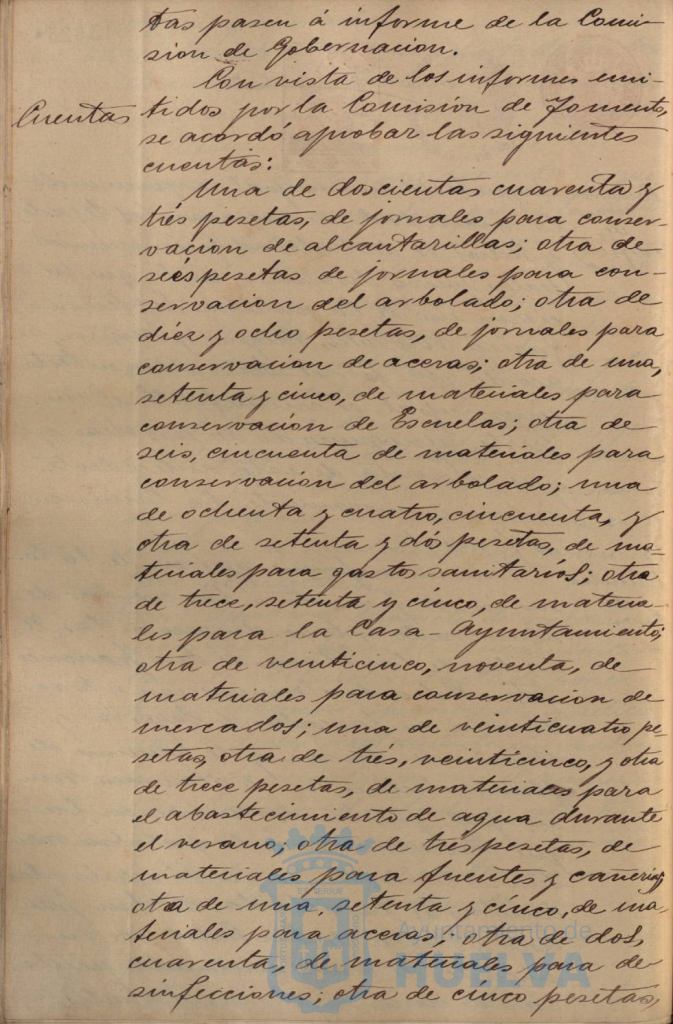 tas pasen á informe de la Comi-
sion de Gobernacion.
Con vista de los informes emi-
Cuentas
tidos por la Comisión de Fomento,
se acordó aprobar las siguientes
cuentas:
Una de doscientas cuarenta y
trés pesetas, de jornales para conser-
vacion de alcantarillas; otra de
seis pesetas de jornales para con-
servacion del arbolado; otra de
diez y ocho pesetas, de jornales para
conservacion de aceras; otra de una,
setenta y cinco, de materiales para
conservación de Escuelas; otra de
seis, cincuenta de materiales para
conservacion del arbolado; una
de ochenta y cuatro, cincuenta, y
otra de setenta y dós pesetas, de ma-
teriales para gastos sanitarios; otra
de trece, setenta y cinco, de materia-
les para la Casa-Ayuntamiento;
otra de veinticinco, noventa, de
materiales para conservacion de
mercados; una de veinticuatro pe-
setas, otra de trés, veinticinco, y otra
de trece pesetas, de materiales para
el abastecimiento de agua durante
el verano; otra de tres pesetas, de
materiales para fuentes y cañerias;
otra de una, setenta y cinco, de ma-
teriales para aceras; otra de dos,
cuarenta, de materiales para de
sinfecciones; otra de cinco pesetas,
Ayuntamiento de
HUELVA